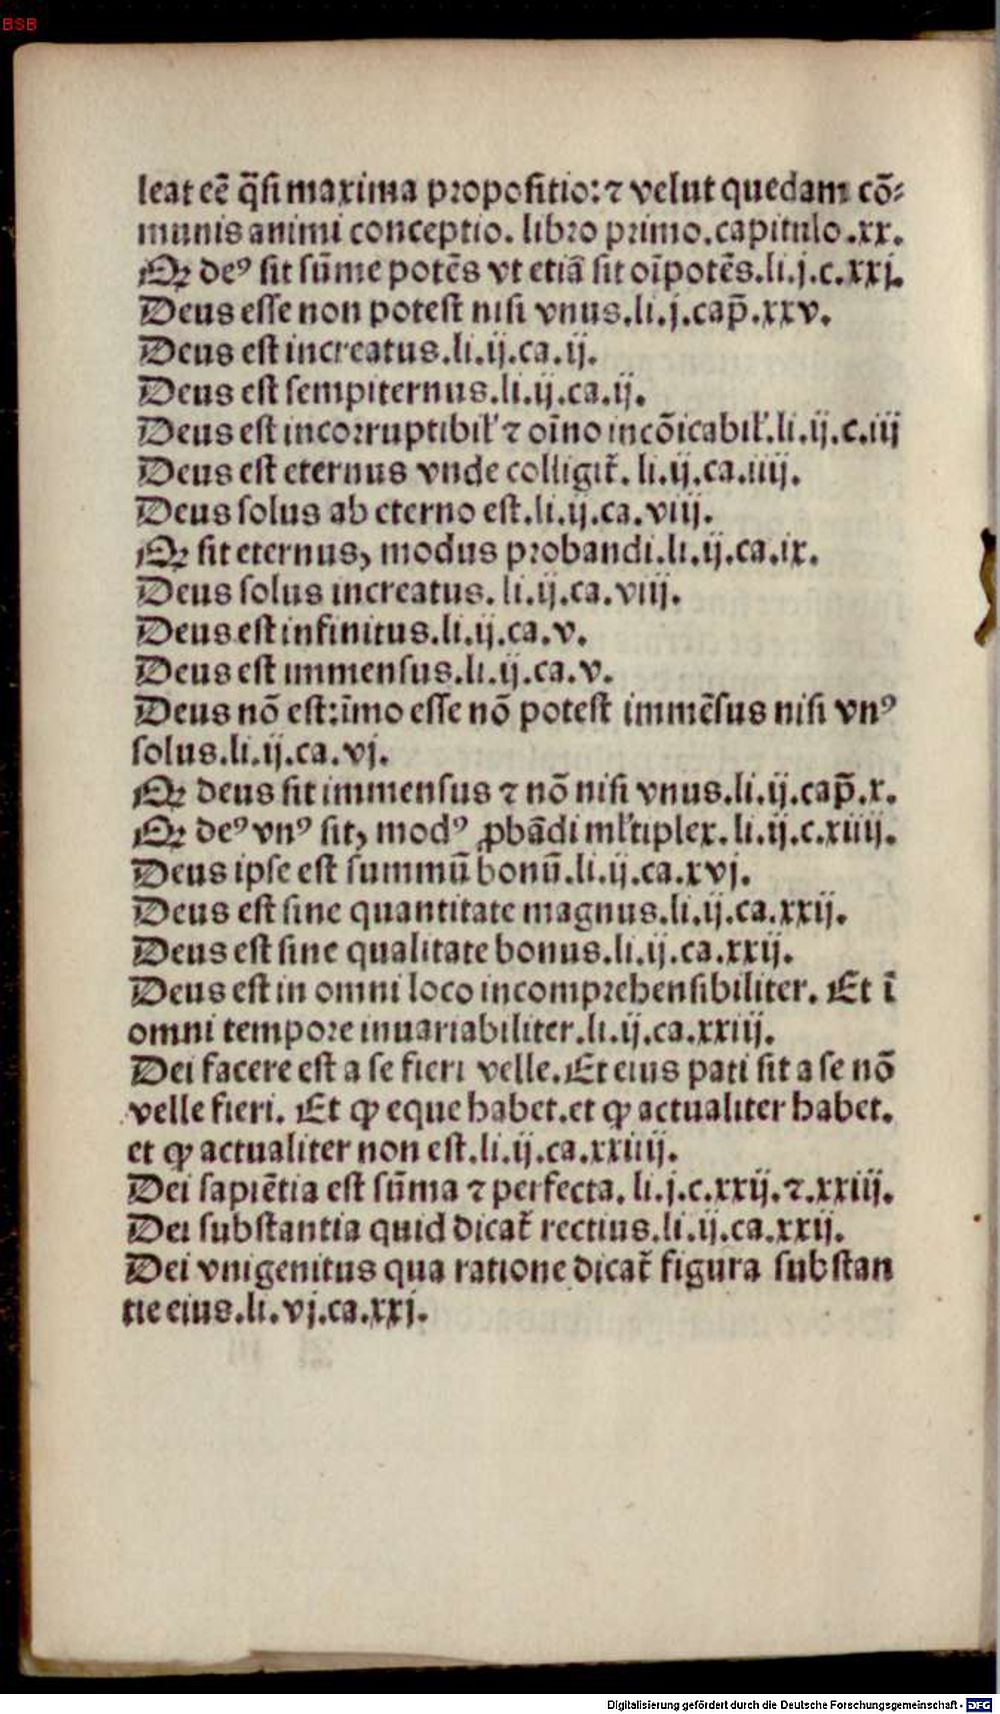 BSB
leat eē q̄si maxima propositio: ⁊ velut quedam cō⸗
munis animi conceptio. libro primo.capitulo.xx.
Qꝫ deꝰ sit sūme potēs vt etiā sit oīpotēs.li.j.c.xxj.
Deus esse non potest nisi vnus.li.j.cap̄.xxv.
Deus est increatus.li.ij.ca.ij.
Deus est sempiternus.li.ij.ca.ij.
Deus est incorruptibil' ⁊ oīno incōicabil'.li.ij.c.iij
Deus est eternus vnde colligit᷑. li.ij.ca.iiij.
Deus solus ab eterno est.li.ij.ca.viij.
Qꝫ sit eternus, modus probandi.li.ij.ca.ix.
Deus solus increatus. li.ij.ca.viij.
Deus est infinitus.li.ij.ca.v.
Deus est immensus.li.ij.ca.v.
Deus nō est:īmo esse nō potest immēsus nisi vnꝰ
solus.li.ij.ca.vj.
Qꝫ deus sit immensus ⁊ nō nisi vnus.li.ij.cap̄.x.
Qꝫ deꝰ vnꝰ sit, modꝰ ꝓbādi ml'tiplex. li.ij.c.xiiij.
Deus ipse est summū bonū.li.ij.ca.xvj.
Deus est sine quantitate magnus.li.ij.ca.xxij.
Deus est sine qualitate bonus.li.ij.ca.xxij.
Deus est in omni loco incomprehensibiliter. Et ī
omni tempore inuariabiliter.li.ij.ca.xxiij.
Dei facere est a se fieri velle.Et eius pati sit a se nō
velle fieri. Et ꝙ eque habet.et ꝙ actualiter habet.
et ꝙ actualiter non est.li.ij.ca.xxiiij.
Dei sapiētia est sūma ⁊ perfecta. li.j.c.xxij.⁊.xxiij.
Dei substantia quid dicat᷑ rectius.li.ij.ca.xxij.
Dei vnigenitus qua ratione dicat᷑ figura substan
tie eius.li.vj.ca.xxj.
Digitalisierung gefördert durch die Deutsche Forschungsgemeinschaft - DFG